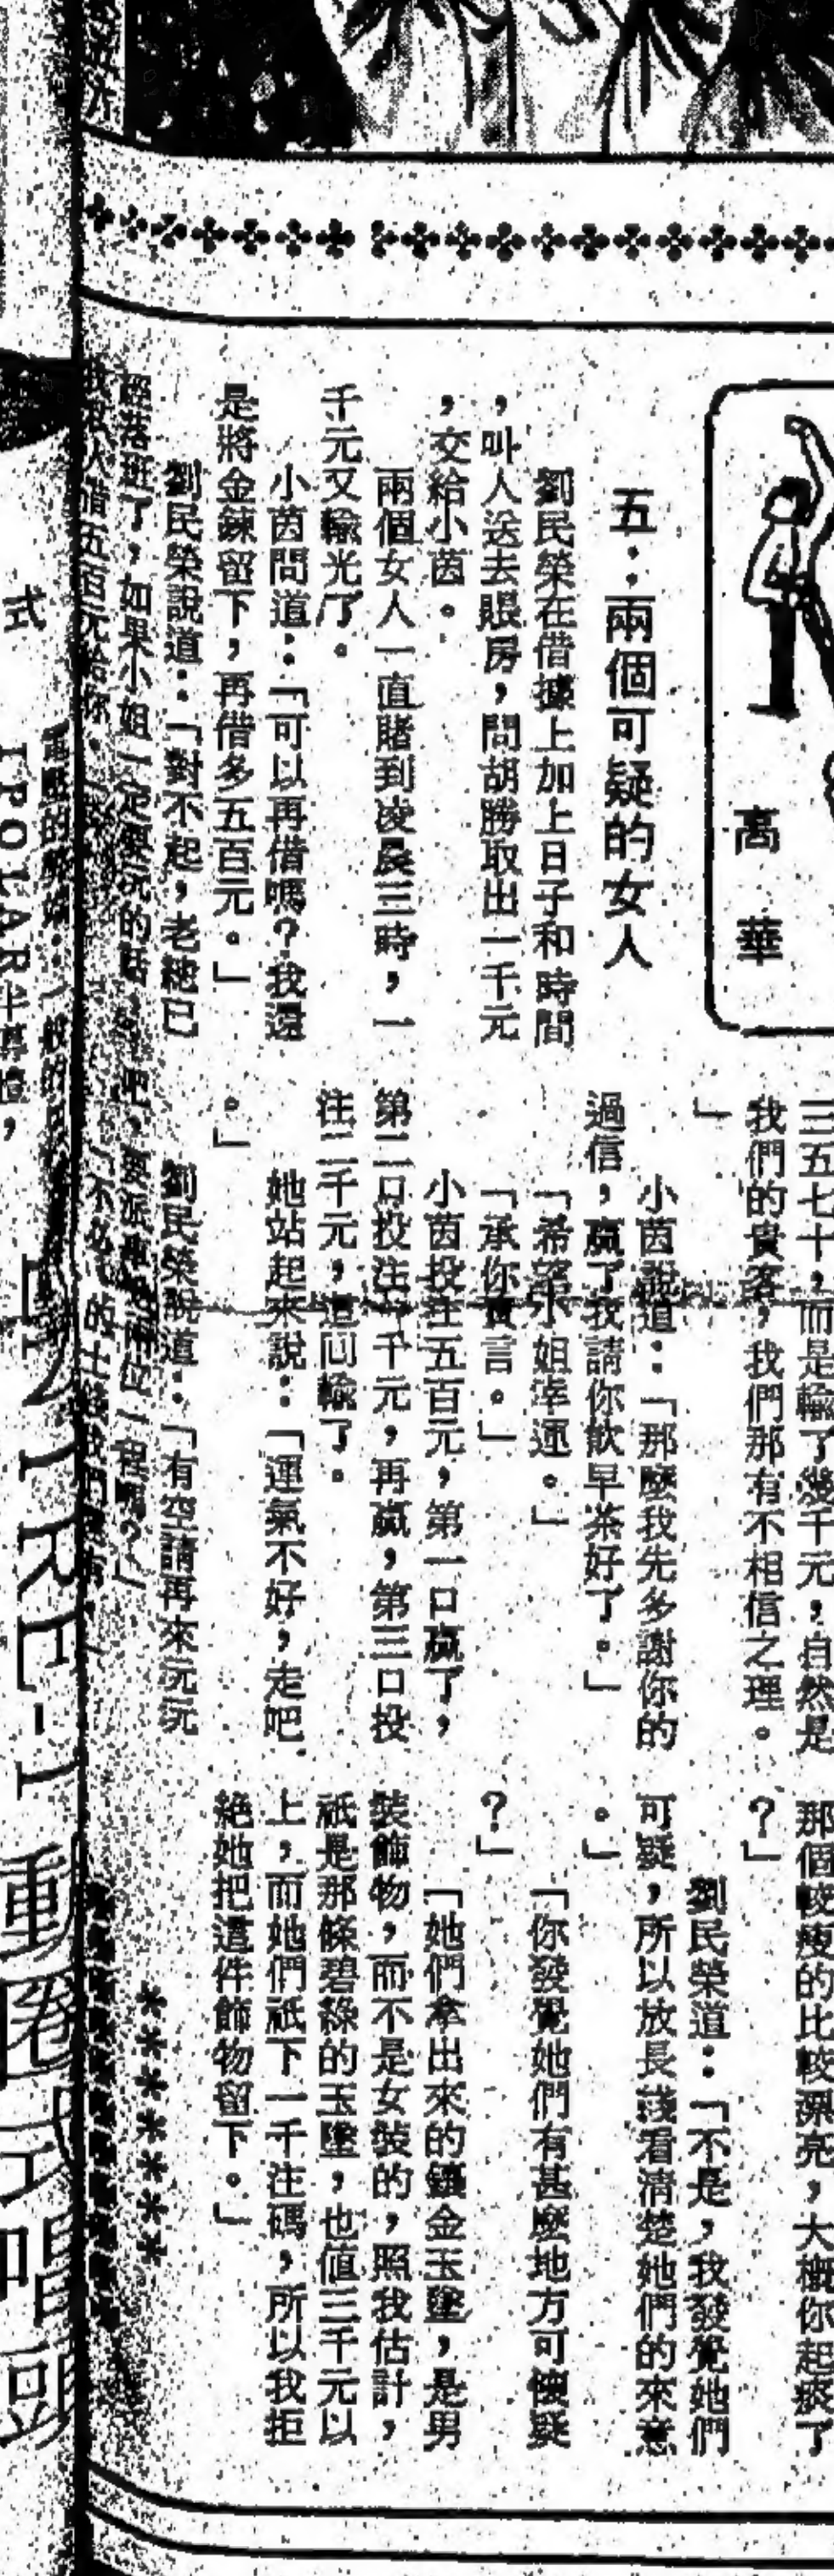 高華
五：兩個可疑的女人
劉民榮在借據上加上日子和時間
，叫人送去賬房，問胡勝取出一千元
，交給小茵。
兩個女人一直賭到凌晨三時，一
千元又輸光了。
小茵問道：「可以再借嗎？我還
是將金鍊留下，再借多五百元。」
劉民榮說道：「對不起，老總已
經落班了，如果小姐一定要玩的話，
我私人借五百元給你。
三五七十，而是輸了幾千元，自然是
我們的貴客，我們那有不相信之理。
」
小茵說道：「那麼我先多謝你的
過信，贏了我請你飲早茶好了。」
「希望小姐幸運。」
「承你貴言。」
小茵投注五百元，第一口贏了，
第二口投注一千元，再贏，第三口投
注二千元，這回輸了。
她站起來說：「運氣不好，走吧
。」
劉民榮說道：「有空請再來玩玩
那個較瘦的比較漂亮，大概你起痰了
？」
劉民榮道：「不是，我發覺她們
可疑，所以放長綫看清楚她們的來意
。」
「你發覺她們有甚麼地方可懷疑
？」
「她們拿出來的鑲金玉墜，是男
裝飾物，而不是女裝的，照我估計，
祇是那條碧綠的玉墜，也值三千元以
上，而她們祇下一千注碼，所以我拒
絕她把這件飾物留下。」
式
動圈式唱頭